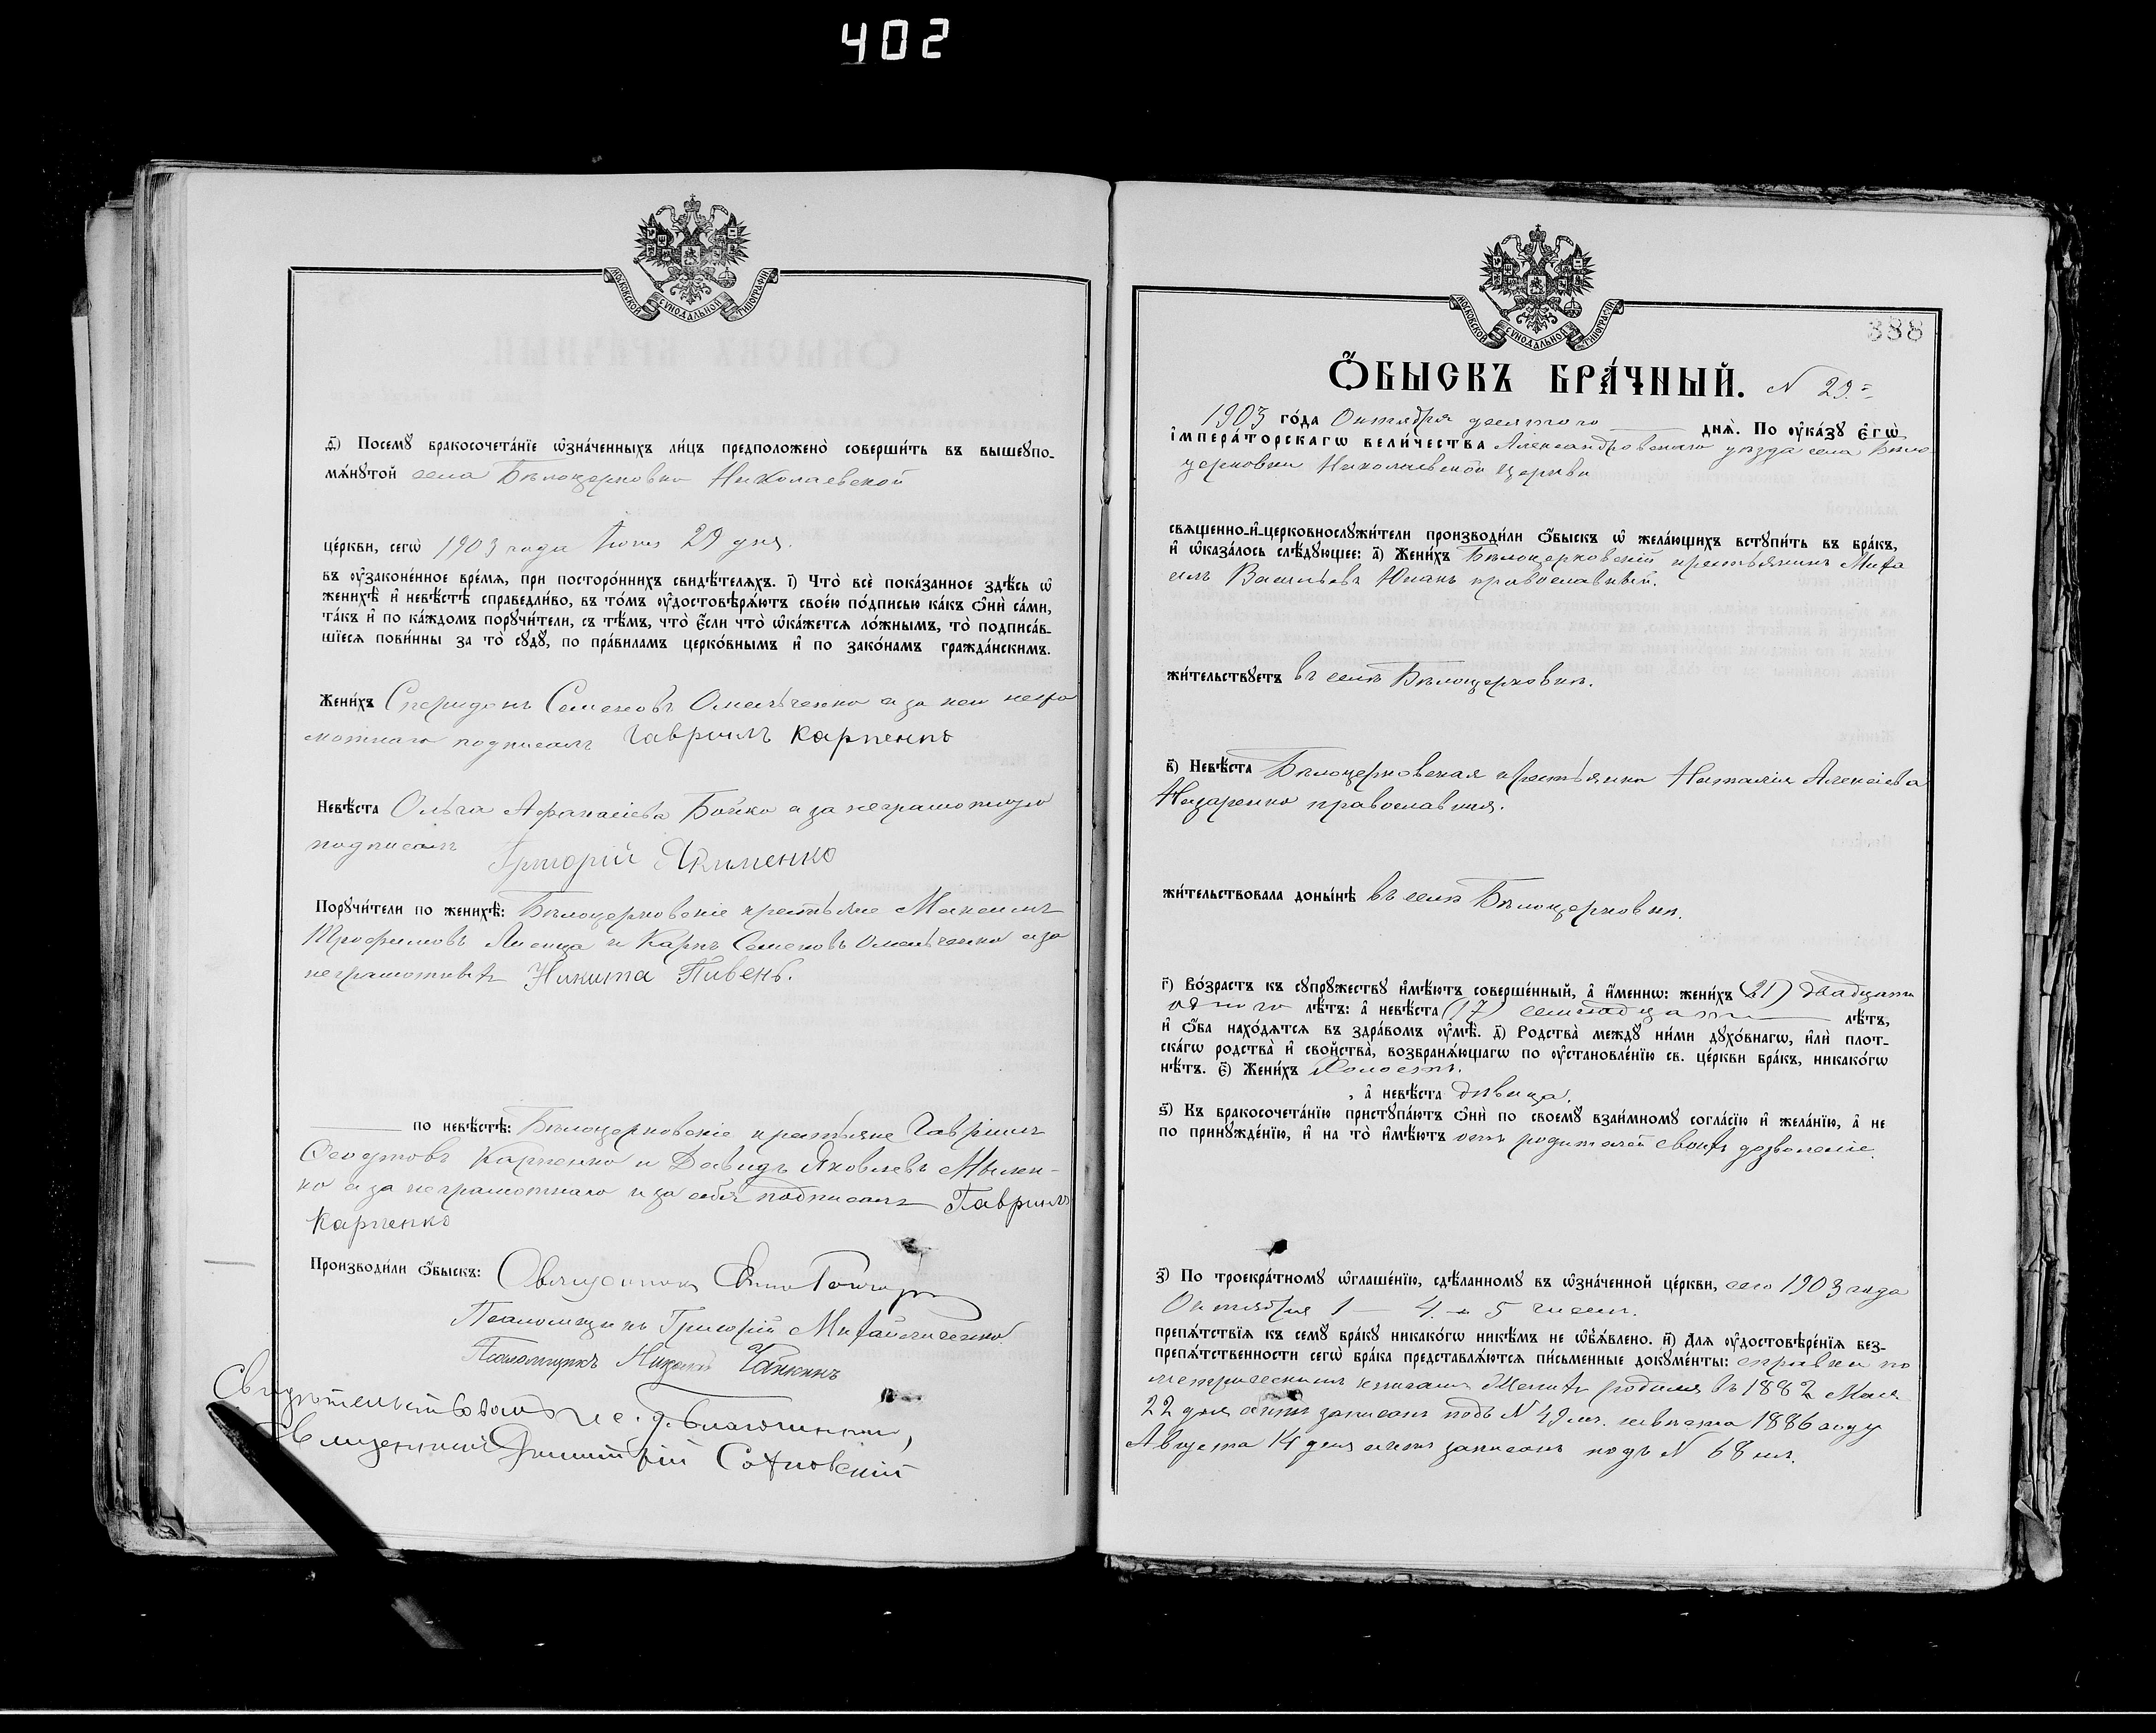 402
МОСКОВСКОЙ СѴНОДАЛЬНОЙ ТИПОГРАФІИ
ѳ҃) Посемꙋ бракосочета́нїе ѡ҆зна́ченныхъ ли́цъ предположено̀ соверши́ть въ вышеꙋпо-
мѧ́нꙋтой села Бѣлоцерковки Николаевской
це́ркви, сегѡ̀ 1903 года Іюня 29 дня.
въ ᲂу҆законе́нное вре́мѧ, при посторо́ннихъ свидѣ́телѧхъ. і҃) Что̀ всѐ пока́занное здѣ́сь ѡ҆
женихѣ̀ и҆ невѣ́стѣ справедли́во, въ то́мъ ᲂу҆достовѣрѧ́ютъ свое́ю по́дписью ка́къ ѻ҆нѝ са́ми,
та́къ и҆ по ка́ждомъ порꙋчи́тели, съ тѣ́мъ, что̀ є҆́сли что̀ ѡ҆ка́жетсѧ ло́жнымъ, то̀ подписа́в-
шїесѧ пови́нны за то̀ сꙋдꙋ̀, по пра́виламъ церко́внымъ и҆ по зако́намъ гражда́нскимъ.
Жени́хъ Спиридонъ Семеновъ Омельченко а за него негра
мотнаго подписалъ Гавриилъ Карпенко
Невѣ́ста Ольга Афанасіева Бойко а за неграмотную
подписалъ Григорій Якименко
Порꙋчи́тели по женихѣ̀: Бѣлоцерковскіе крестьяне Максимъ
Трофимовъ Лисица и Карпъ Семеновъ Омельченко а за
неграмотныхъ Никита Пивень.
по невѣ́стѣ: Бѣлоцерковскіе крестьяне Гавріилъ
Карпенко и Давидъ Яковлевъ Мылен-
ко а за неграмотнаго и за себя подписалъ Гавриилъ
Карпенко
Производи́ли ѻ҆́быскъ: Священникъ
Псаломщикъ Григорій Михайличенко
Псаломщикъ
Свидѣтельствовалъ и. д. благочиннаго,
Священникъ Димитрій Сахновскій
МОСКОВСКОЙ СѴНОДАЛЬНОЙ ТИПОГРАФІИ
388
Ѻ҆́БЫСКЪ БРА́ЧНЫЙ. N 29
1903 го́да Октября десятого днѧ̀. По ᲂу҆ка́зꙋ є҆гѡ̀
і҆мпера́торскагѡ вели́чества Александровскаго уѣзда села Бѣло
церковки Николаевской церкви
свѧщенно-и҆-церковнослꙋжи́тели производи́ли ѻ҆́быскъ ѡ҆ жела́ющихъ встꙋпи́ть въ бра́къ,
и҆ ѡ҆каза́лось слѣ́дꙋющее: а҃) Жени́хъ Бѣлоцерковскій крестьянинъ Миха
илъ Васильевъ Юнакъ православный.
жи́тельствꙋетъ въ селѣ Бѣлоцерковкѣ.
в҃) Невѣ́ста Бѣлоцерковская крестьянка Наталія Алексіева
Назаренко православная.
жи́тельствовала доны́нѣ въ селѣ Бѣлоцерковкѣ.
г҃) Во́зрастъ къ сꙋпрꙋ́жествꙋ и҆мѣ́ютъ соверше́нный, а҆ и҆́менно: жени́хъ (21) двадцати
одного лѣ́тъ: а҆ невѣ́ста (17) семнадцати лѣ́тъ,
и҆ ѻ҆́ба нахо́дѧтсѧ въ здра́вомъ ᲂу҆мѣ̀. д҃) Родства̀ междꙋ ни́ми дꙋхо́внагѡ, и҆лѝ плот-
ска́гѡ родства̀ и҆ свойства̀, возбранѧ́ющагѡ по ᲂу҆становле́нїю св. це́ркви бра́къ, никако́гѡ
нѣ́тъ. є҃) Жени́хъ Холостъ.
, а҆ невѣ́ста дѣвица.
ѕ҃) Къ бракосочета́нїю пристꙋпа́ютъ ѻ҆нѝ по своемꙋ̀ взаи́мномꙋ согла́сїю и҆ жела́нїю, а҆ не
по принꙋжде́нїю, и҆ на то̀ и҆мѣ́ютъ отъ родителей своихъ дозволеніе.
з҃) По троекра́тномꙋ ѡ҆глаше́нїю, сдѣ́ланномꙋ въ ѡ҆зна́ченной це́ркви, сего 1903 года
Октября 1 — 4 — 5 чиселъ.
препѧ́тствїѧ къ семꙋ̀ бра́кꙋ никако́гѡ никѣ́мъ не ѡ҆б̾ѧ́влено. и҃) Длѧ̀ ᲂу҆достовѣре́нїѧ без-
препѧ́тственности сегѡ̀ бра́ка представлѧ́ютсѧ пи́сьменные докꙋме́нты: справка по
метрическимъ книгамъ Женихъ родился въ 1882 Мая
22 дня актъ записанъ подъ N 49 м. невѣста 1886 году
Августа 14 дня актъ записанъ подъ N 68 ж.